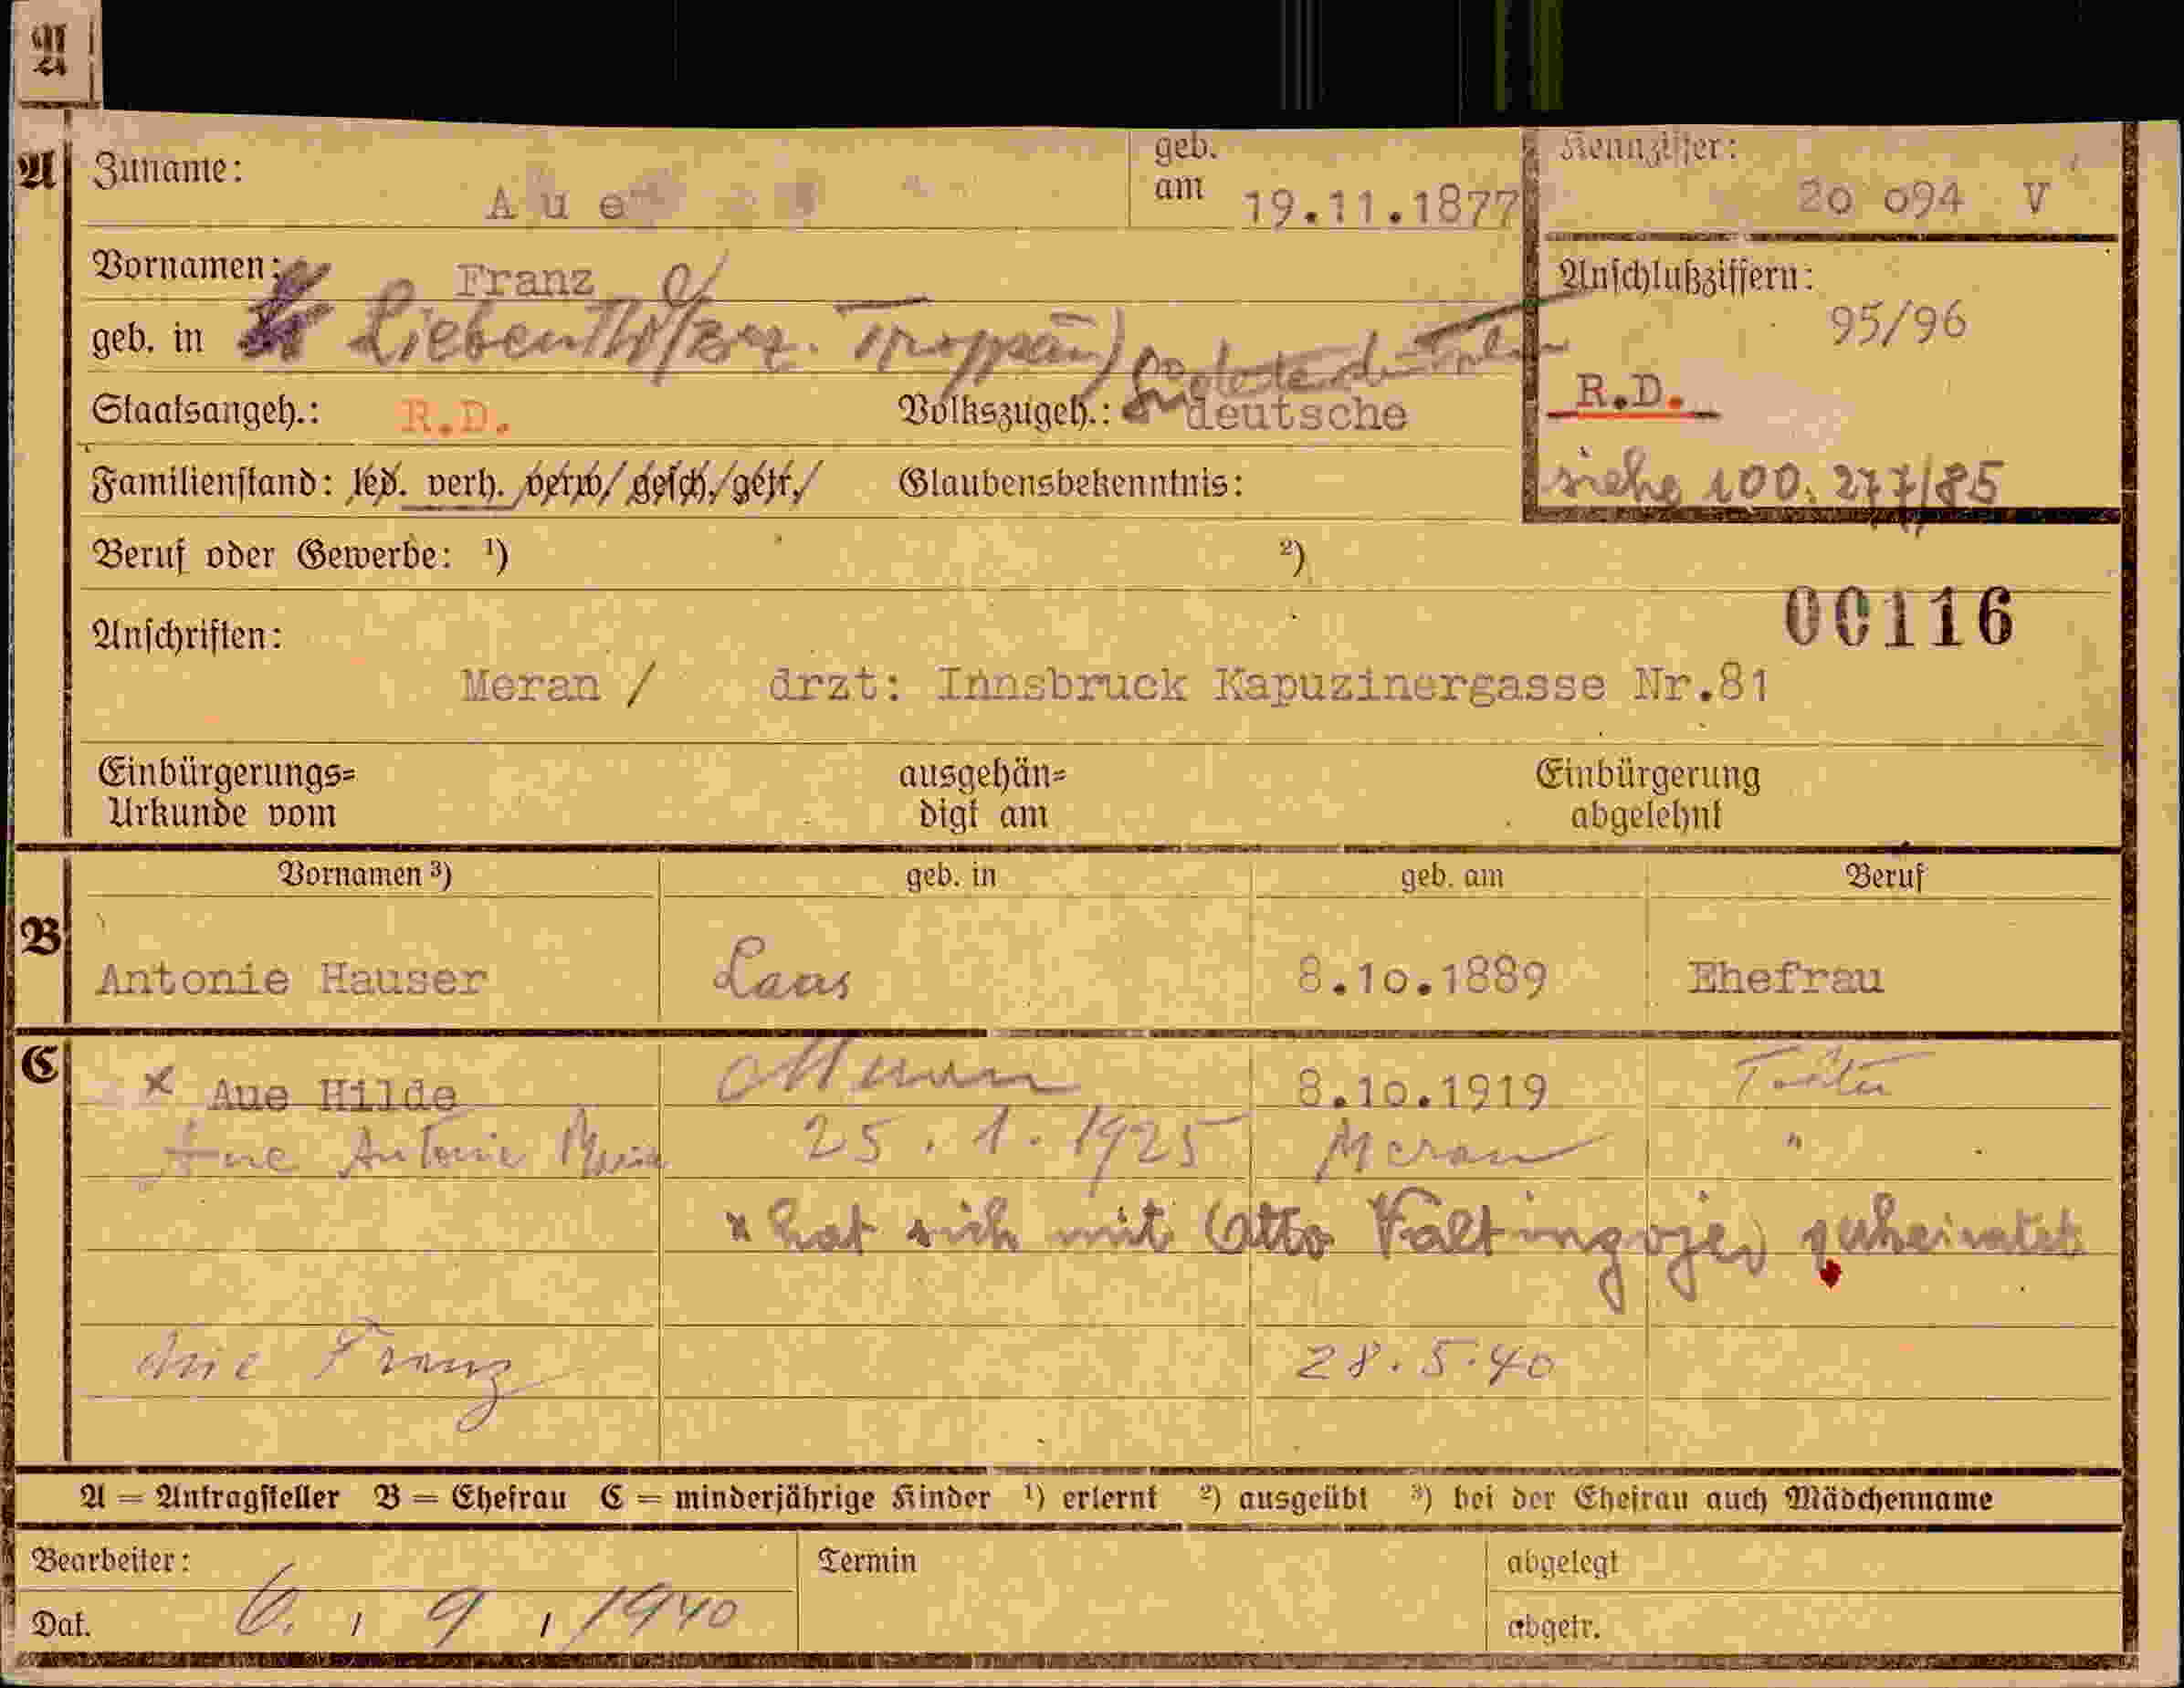 A
A Zuname: Aue geb. am 19.11.1877 Kennziffer: 20 094 V
Vornamen: Franz Anschlußziffern: 95/96
geb. in Troppau)
Staatsangeh.: R.D. Volkszugeh.: deutsche R.D.
Familienstand: led. verh. verw/ gesch./getr./ Glaubensbekenntnis: siehe 100.277/85
Beruf oder Gewerbe: ¹) ²)
00116
Anschriften:
Meran / drzt: Innsbruck Kapuzinergasse Nr.81
Einbürgerungs= ausgehän= Einbürgerung
Urkunde vom digt am abgelehnt
Vornamen ³) geb. in geb. am Beruf
B
Antonie Hauser Laas 8.10.1889 Ehefrau
C
x Aue Hilde Meran 8.10.1919 Tochter
Aue Antonie Maria 25.1.1925 Meran "
x hat sich mit Otto geheiratet
Aue Franz 28.5.40
A = Antragsteller B = Ehefrau C = minderjährige Kinder ¹) erlernt ²) ausgeübt ³) bei der Ehefrau auch Mädchenname
Bearbeiter: Termin abgelegt
Dat. 6. 9. 1940 abgetr.